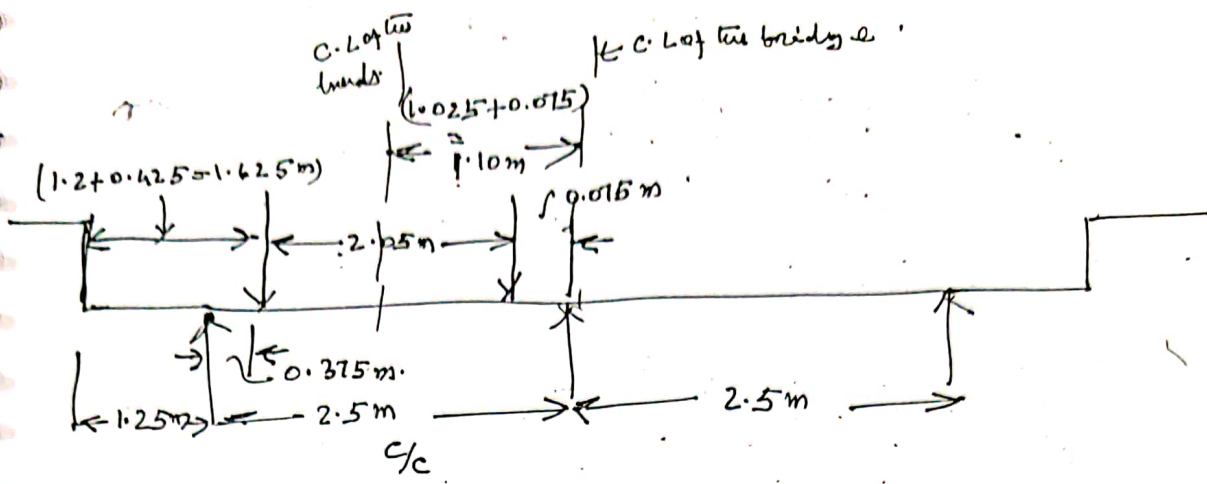 C.L of the
loads.
C.L of the bridge.
(1.025+0.075)
=
1.10m
(1.2+0.425=1.625m)
0.075 m
2.05m
0.375m.
1.25m
2.5m
2.5m
c/c